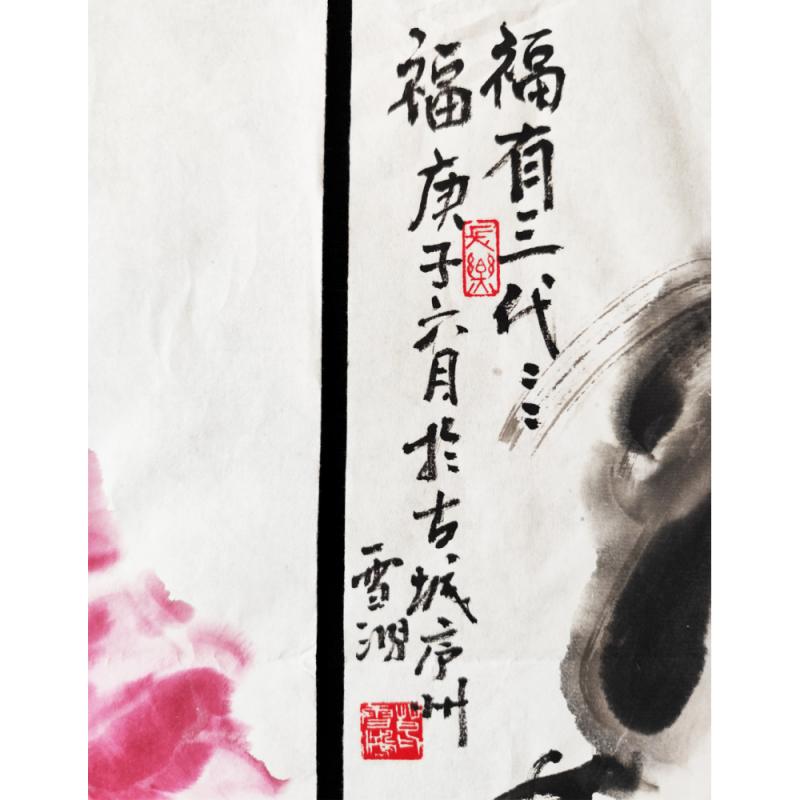 福有三代々々
福庚子六月於古城庐州
雪鸿
長樂